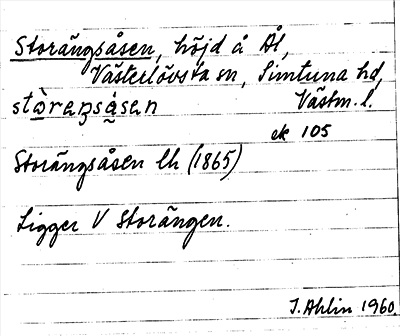 Storängsåsen, höjd å Ål,
Västerlövsta sn, Simtuna hd,
stòreŋsåsen Västm. l.
ek 105
Storängsåsen lh (1865)
Ligger V Storängen.
J. Ahlin 1960.